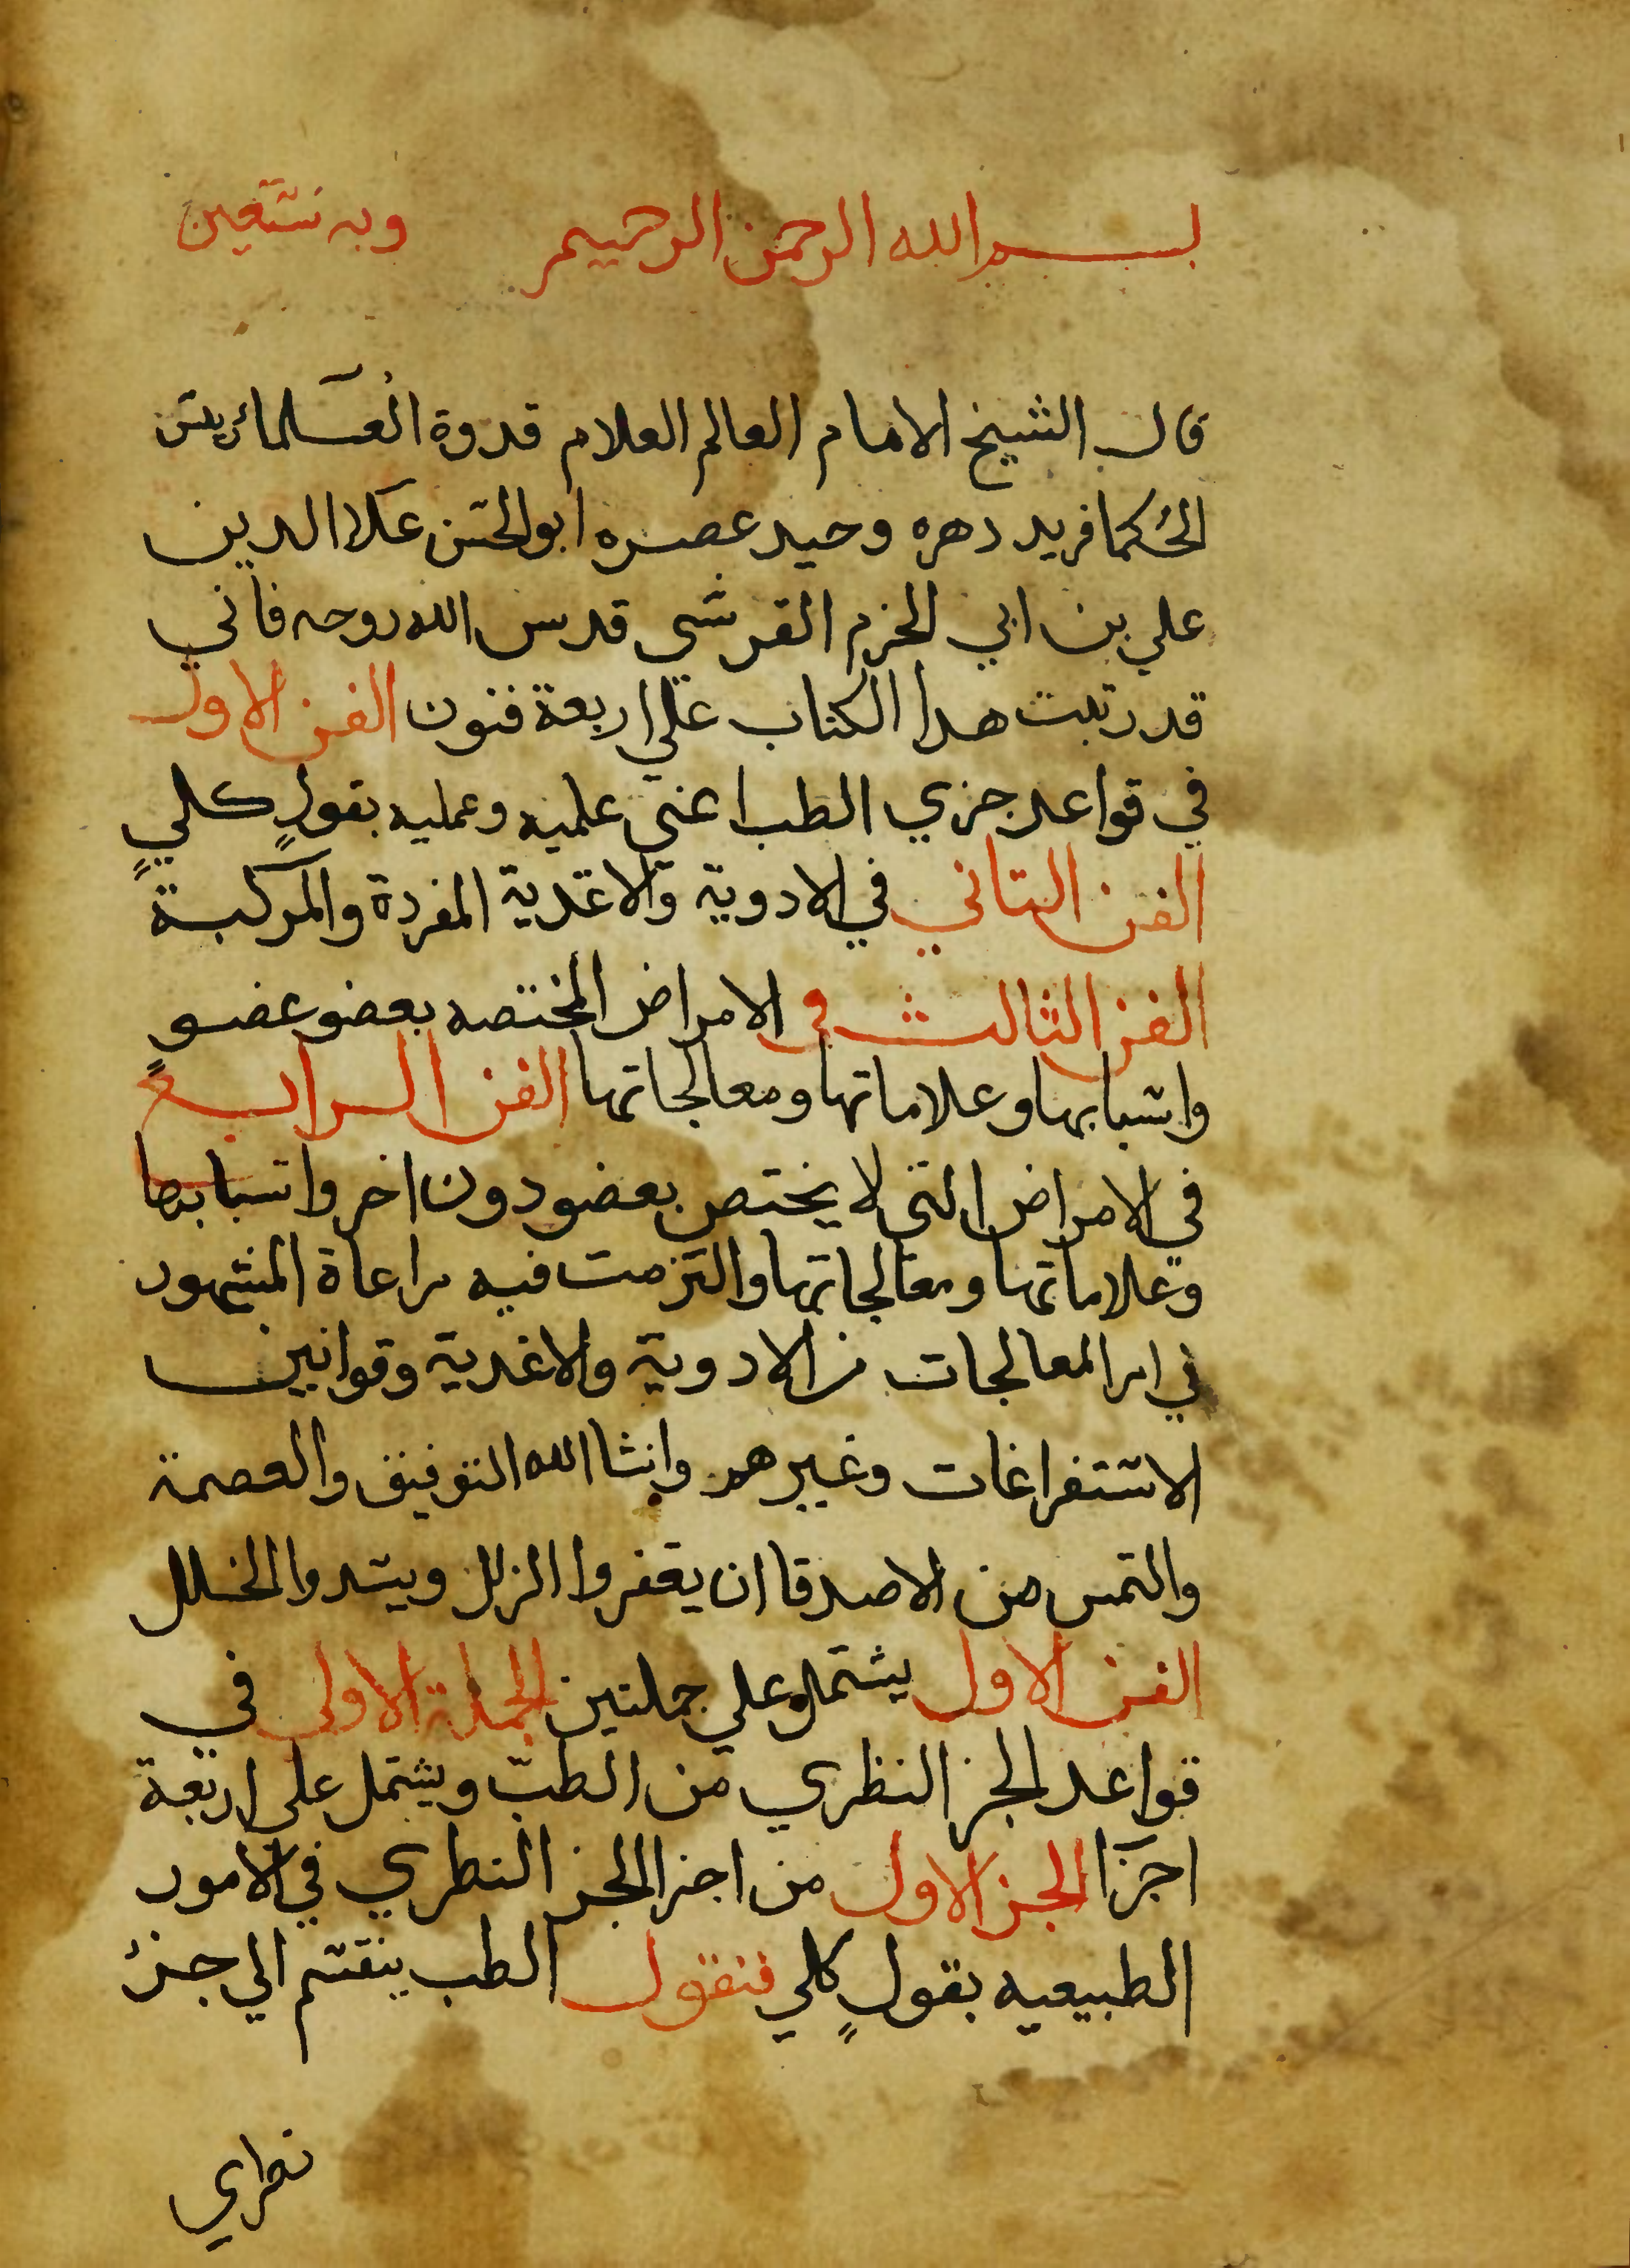 بسم الله الرحمن الرحيم وبه نستعين
قال الشيخ الامام العالم العلام قدوة العلما رئيس
الحكما فريد دهره وحيد عصره ابو الحسن علا الدين
علي بن ابي الحزم القرشي قدس الله روحه فاني
قد رتبت هدا الكتاب علي اربعة فنون الفن الاول
في قواعد جزي الطب اعني علميه وعمليه بقولٍ كليٍ
الفن التاني في الادوية والاغدية المفردة والمركبة
الفن الثالث في الامراض المختصه بعضو عضوٍ
واسبابها وعلاماتها ومعالجاتها الفن الرابع
في الامراض التي لا يختص بعضو دون اخر واسبابها
وعلاماتها ومعالجاتها والتزمت فيه مراعاة المشهور
في امر المعالجات من الادوية والاغدية وقوانين
الاستفراغات وغيرهم وانشا الله التوفيق والعصمة
والتمس من الاصدقا ان يغفروا الزلل ويسدوا الخلل
الفن الاول يشتمل علي جملتين الجملة الاولى في
قواعد الجز النظري من الطب ويشتمل على اربعة
اجزا الجز الاول من اجزا الجز النطري في الامور
الطبيعيه بقولٍ كلي فنقول الطب ينقسم الي جزء
نطري